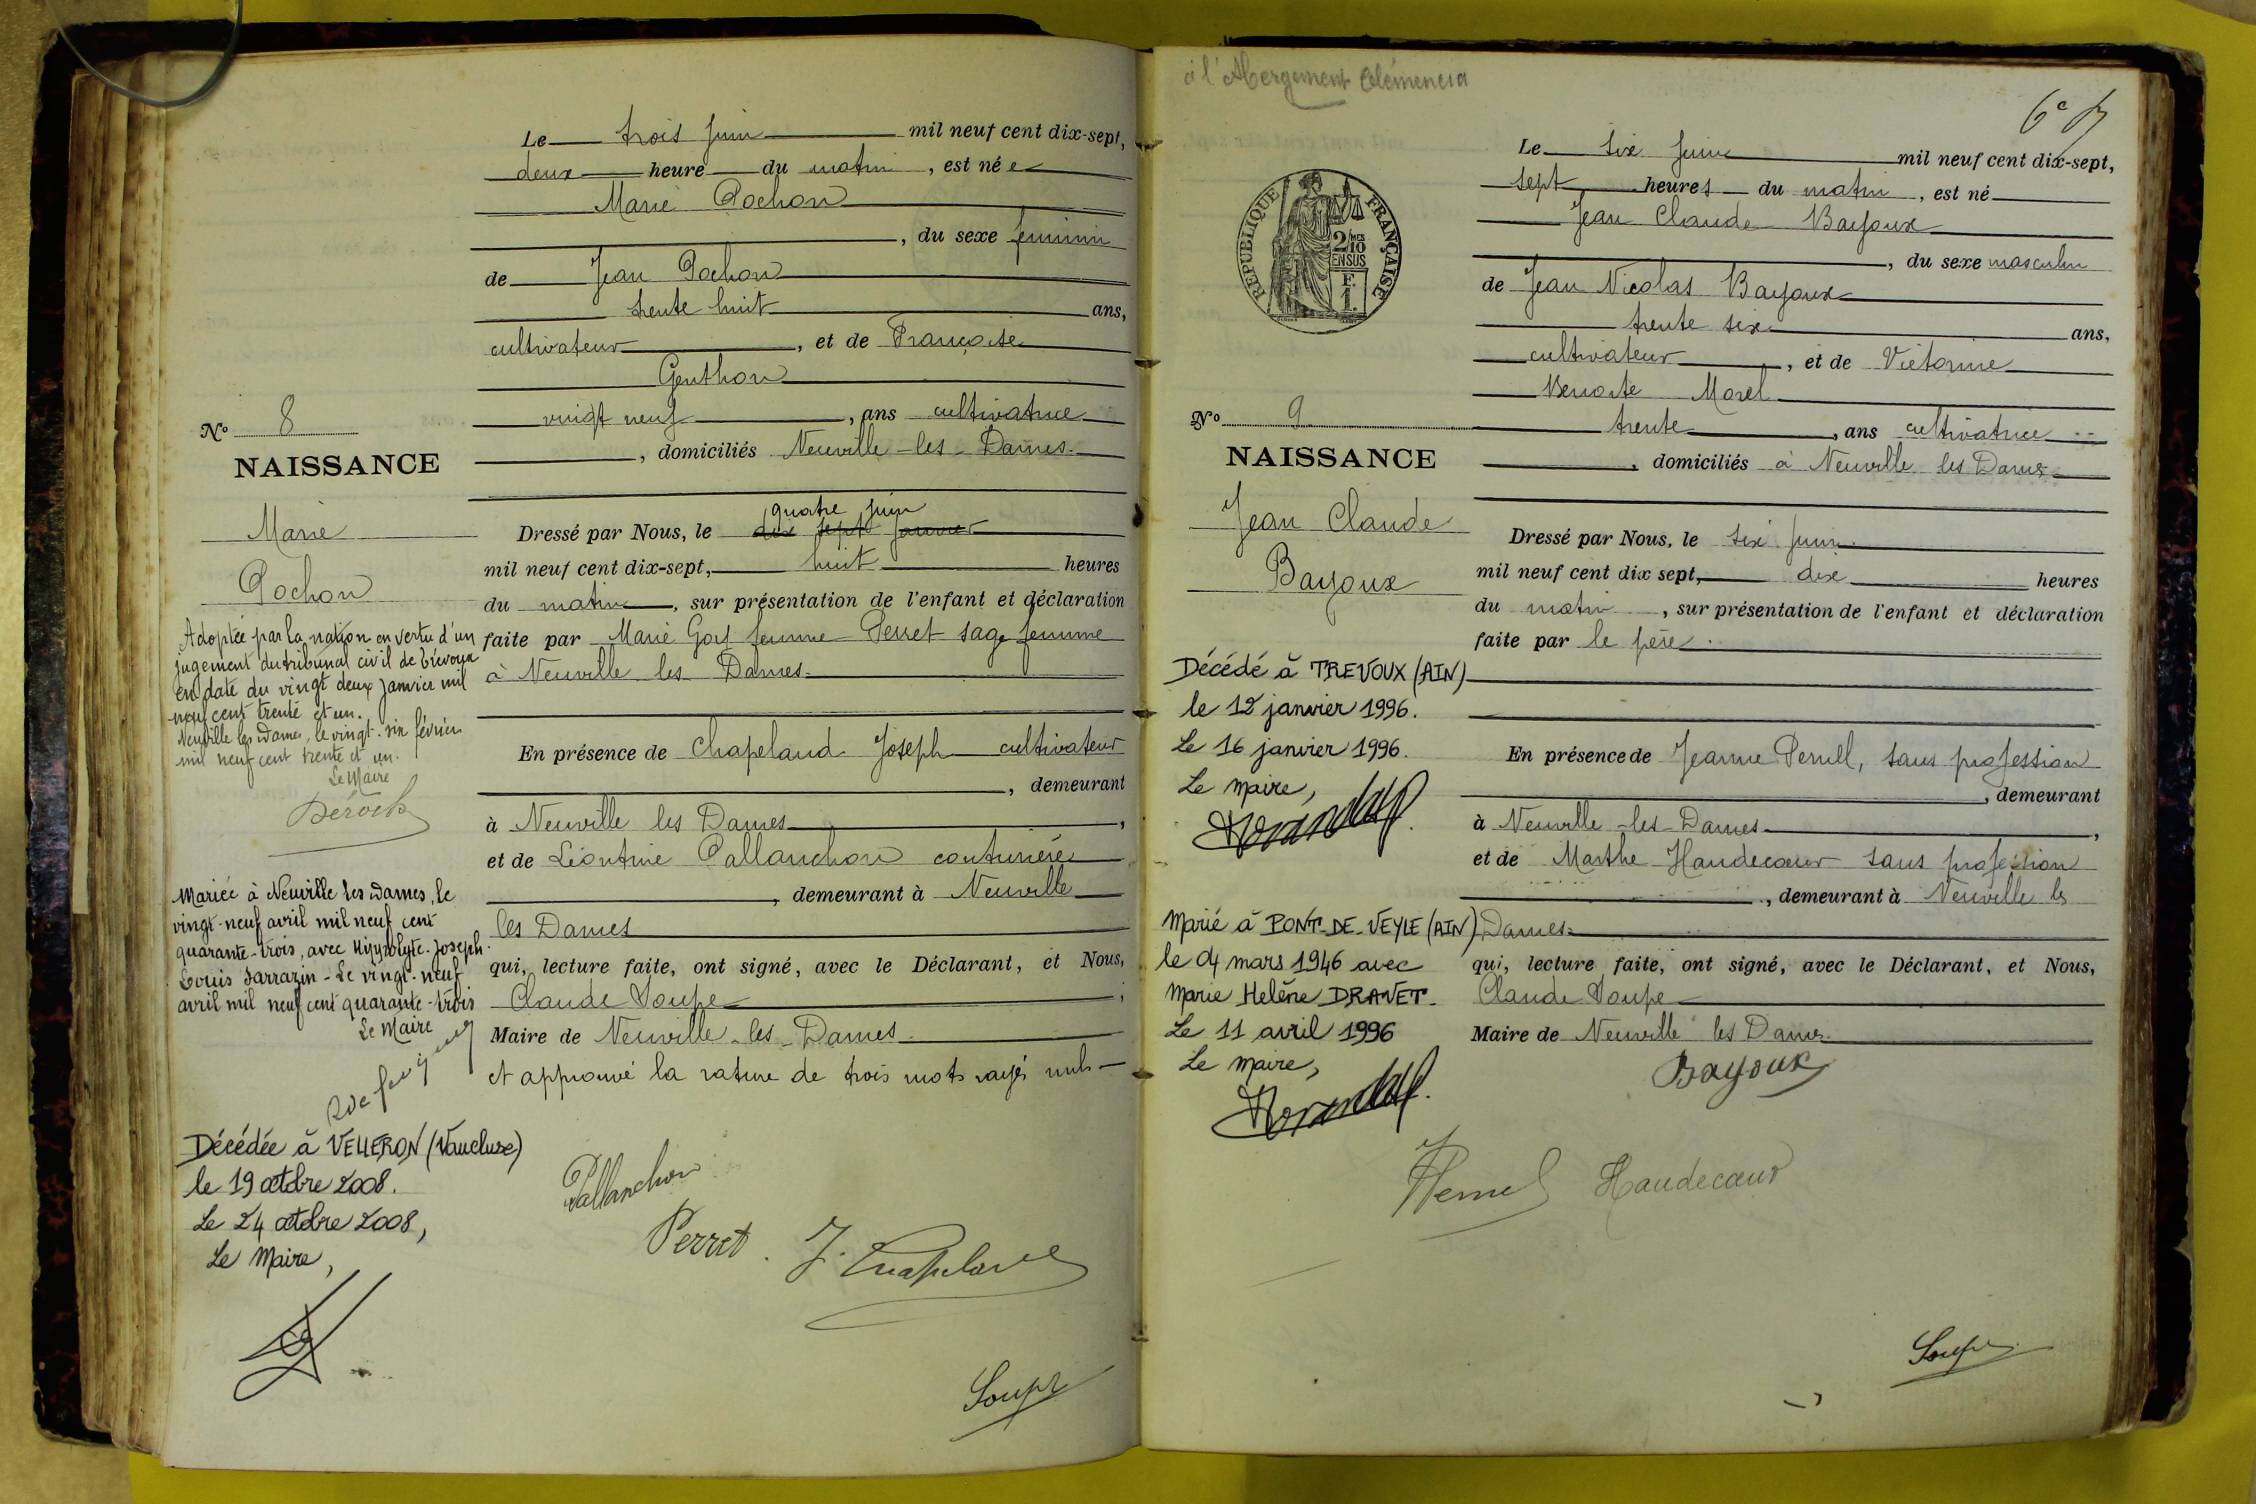 Le trois juin mil neuf cent dix-sept,
deux heure du matin, est né e
Marie Pochon
, du sexe feminin
de Jean Pochon
trente huit ans,
cultivateur, et de Françoise
Genthon
vingt neuf, ans cultivatrice
, domiciliés Neuville-les-Dames.
No 8
NAISSANCE
Marie
Pochon
Adoptée par la nation en vertu d'un
jugement du tribunal civil de Trévoux
en date du vingt deux janvier mil
neuf cent trente et un.
Neuville les Dames, le vingt-six février
mil neuf cent trente et un.
Le Maire
Mariée à Neuville les Dames, le
vingt-neuf avril mil neuf cent
quarante-trois, avec Hippolyte-Joseph-
Louis Sarrazin - Le vingt-neuf
avril mil neuf cent quarante-trois
Le Maire
Décédée à VELLERON (Vaucluse)
le 19 octobre 2008.
Le 24 octobre 2008,
Le Maire,
quatre juin
Dressé par Nous, le dix sept janvier
mil neuf cent dix-sept, huit heures
du matin, sur présentation de l'enfant et déclaration
faite par Marie Goy femme Perret sage femme
à Neuville les Dames.
En présence de Chapeland Joseph cultivateur
, demeurant
à Neuville les Dames,
et de Léontine Pallanchon couturière
, demeurant à Neuville
les Dames
qui, lecture faite, ont signé, avec le Déclarant, et Nous,
Claude Soupe;
Maire de Neuville-les-Dames.
et approuvé la rature de trois mots rayés nuls
Pallanchon
Perret.
J. Chapeland
Soupe
à l'Abergement Clémencia
6e
RÉPUBLIQUE FRANÇAISE
2/10MES
EN SUS
F.
1.
Le six juin mil neuf cent dix-sept,
sept heures du matin, est né
Jean Claude Bayoux
, du sexe masculin
de Jean Nicolas Bayoux
trente six ans,
cultivateur, et de Victorine
Benoite Morel
trente, ans cultivatrice
, domiciliés à Neuville les Dames
No 9
NAISSANCE
Jean Claude
Bayoux
Décédé à TREVOUX (AIN)
le 12 janvier 1996.
Le 16 janvier 1996.
Le Maire,
Marié à PONT-DE-VEYLE (AIN)
le 04 mars 1946 avec
Marie Helène DRAVET.
Le 11 avril 1996
Le Maire,
Dressé par Nous, le six juin
mil neuf cent dix sept, dix heures
du matin, sur présentation de l'enfant et déclaration
faite par le père.
En présence de Jeanne Pernel, sans profession
, demeurant
à Neuville-les-Dames,
et de Marthe Haudecœur sans profession
, demeurant à Neuville les
Dames
qui, lecture faite, ont signé, avec le Déclarant, et Nous,
Claude Soupe
Maire de Neuville les Dames.
Bayoux
Pernel Haudecœur
Soupe